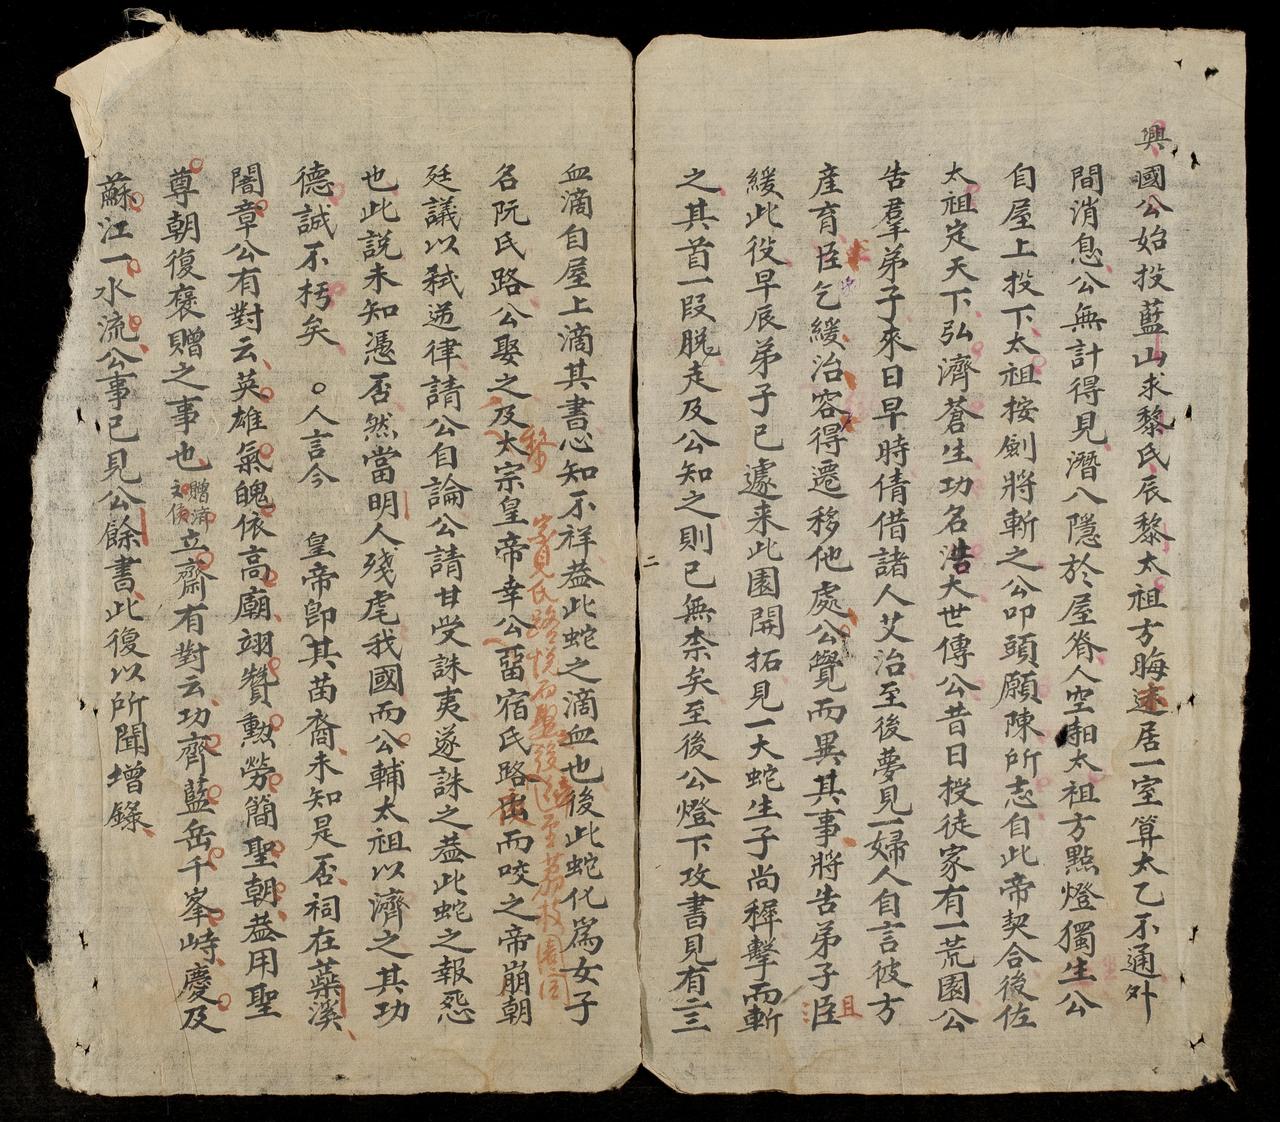 興國公始投藍山求黎氏辰黎太祖方晦迹居一室算太乙不通外
間消息公無計得見潛入隱於屋脊人空廂太祖方點燈獨生公
自屋上投下太祖按劍將斬之公叩頭願陳所志自此帝契合後佐
太祖定天下弘濟蒼生功名浩大世傳公昔日授徒家有一荒園公
告羣弟子來日早時倩借諸人艾治至後夢見一婦人自言彼方
產育臣乞緩治容得遷移他處公覺而異其事將告弟子臣
且
緩此役早辰弟子已遽來此園開拓見一大蛇生子尚穉擊而斬
之其首一段脫走及公知之則已無柰矣至後公燈下攻書見有三
二
血滴自屋上滴其書心知不祥葢此蛇之滴血也後此蛇化爲女子
名阮氏路公娶之及太宗皇帝幸公留宿氏路出而咬之帝崩朝
見氏路悅而 後 至荔枝園
廷議以弒逆律請公自論公請甘受誅夷遂誅之葢此蛇之報怨
也此說未知憑否然當明人殘虐我國而公輔太祖以濟之其功
德誠不朽矣 ○人言今 皇帝卽其苗裔未知是否祠在蘂溪
闇章公有對云英雄氣魄依高廟翊贊勳勞簡聖朝葢用聖
尊朝復褒贈之事也贈濟文侯立齋有對云功齊藍岳千峯峙慶及
蘇江一水流公事已見公餘書此復以所聞增錄